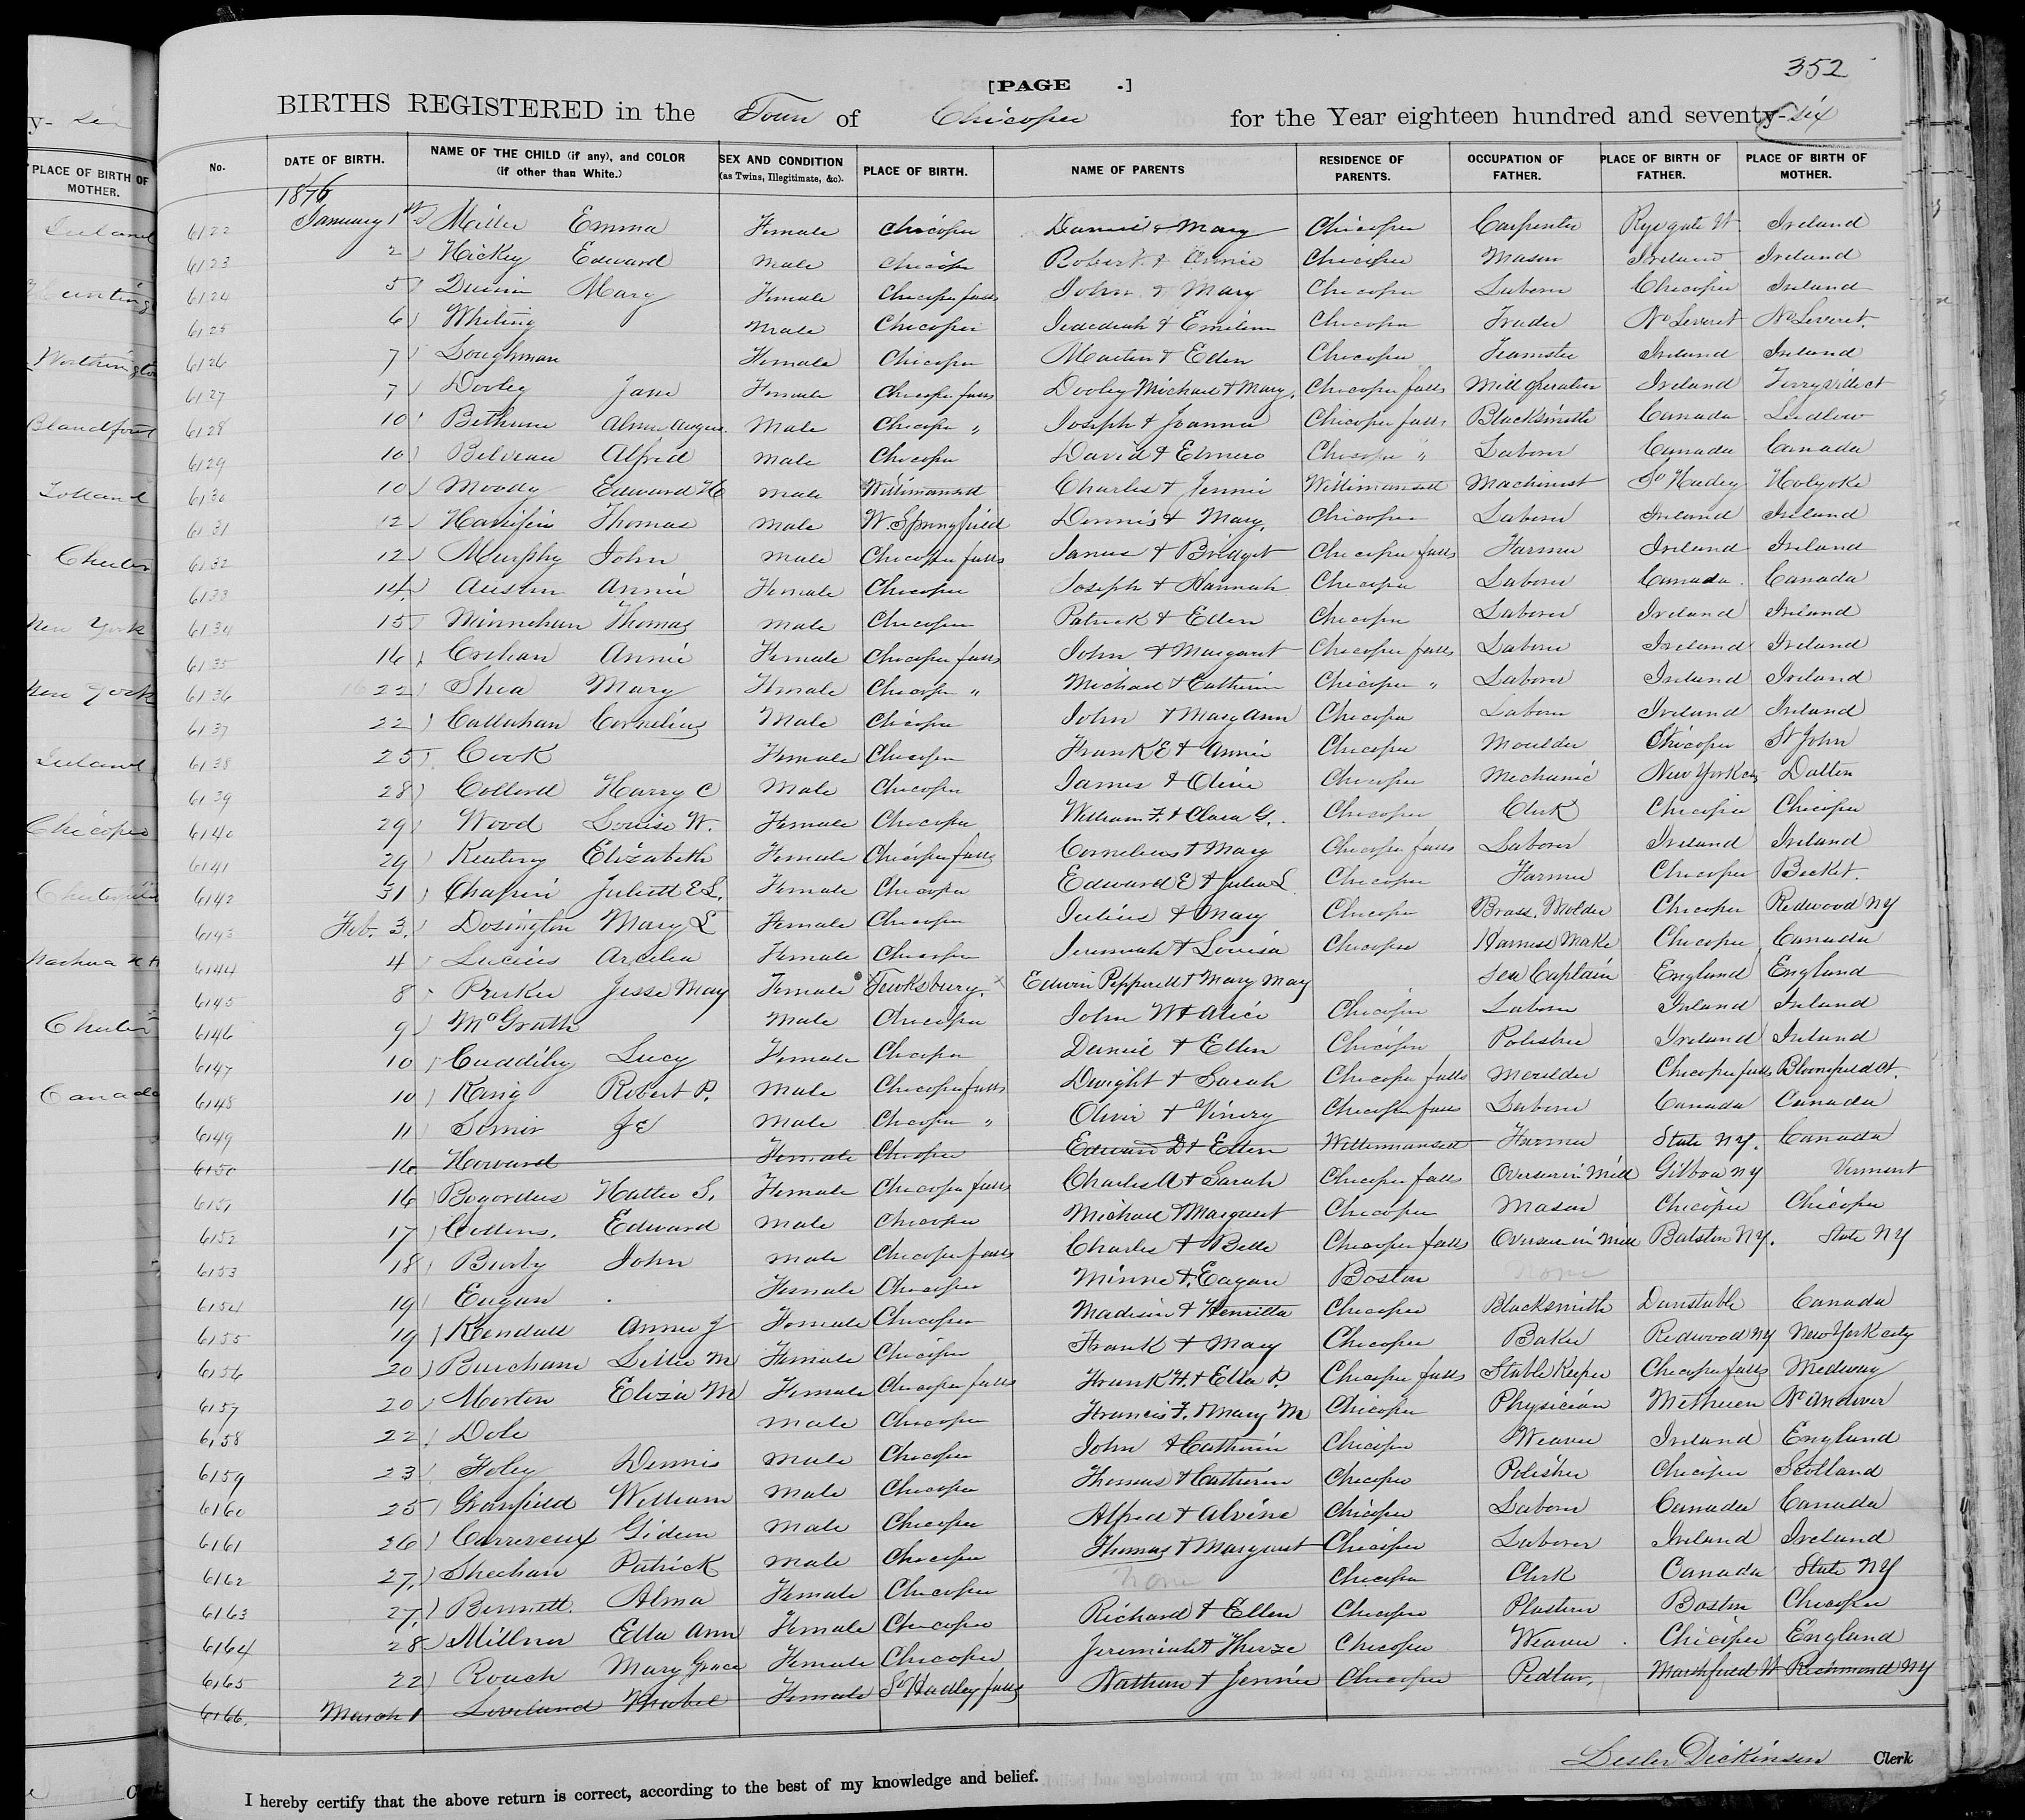 352
[PAGE .]
BIRTHS REGISTERED in the Town of Chicopee for the Year eighteen hundred and seventy-six
No. DATE OF BIRTH. NAME OF THE CHILD (if any), and COLOR (if other than White.) SEX AND CONDITION (as Twins, Illegitimate, &c). PLACE OF BIRTH. NAME OF PARENTS RESIDENCE OF PARENTS. OCCUPATION OF FATHER. PLACE OF BIRTH OF FATHER. PLACE OF BIRTH OF MOTHER.
1876
6122 January 1st Miller Emma Female Chicopee Daniel & Mary Chicopee Carpenter Ryegate Vt Ireland
6123 2 Hickey Edward Male Chicopee Robert & Annie Chicopee Mason Ireland Ireland
6124 5 Mary Female Chicopee falls John & Mary Chicopee Laborer Chicopee Ireland
6125 6 Whiting Male Chicopee Jedediah & Chicopee Trader No Leveret No Leveret.
6126 7 Loughman Female Chicopee Martin & Ellen Chicopee Teamster Ireland Ireland
6127 7 Dooley Jane Female Chicopee falls Dooley Michael & Mary. Chicopee falls Mill operative Ireland
6128 10 Bethune Augus. Male Chicopee " Joseph & Joanna Chicopee falls Blacksmith Canada Ludlow
6129 10 Alfred Male Chicopee David & Chicopee " Laborer Canada Canada
6130 10 Moody Edward H Male Willimansett Charles & Jennie Willimansett Machinist So Hadley Holyoke
6131 12 Hanifin Thomas Male W. Springfield Dennis & Mary. Chicopee Laborer Ireland Ireland
6132 12 Murphy John Male Chicopee falls James & Bridget Chicopee falls Farmer Ireland Ireland
6133 14 Austin Annie Female Chicopee Joseph & Hannah Chicopee Laborer Canada Canada
6134 15 Minnehan Thomas Male Chicopee Patrick & Ellen Chicopee Laborer Ireland Ireland
6135 16 Crehan Annie Female Chicopee falls John & Margaret Chicopee falls Laborer Ireland Ireland
6136 22 Shea Mary Female Chicopee " Michael & Catherine Chicopee " Laborer Ireland Ireland
6137 22 Callahan Cornelius Male Chicopee John & Mary Ann Chicopee Laborer Ireland Ireland
6138 25 Cook Female Chicopee Frank E & Annie Chicopee Moulder Chicopee St John
6139 28 Collord Harry C Male Chicopee James & Chicopee Mechanic New York city Dalton
6140 29 Wood Louise W. Female Chicopee William F. & Clara G. Chicopee Clerk Chicopee Chicopee
6141 29 Keating Elizabeth Female Chicopee falls Cornelius & Mary Chicopee falls Laborer Ireland Ireland
6142 31 Chapin Juliett E L. Female Chicopee Edward E & Julia L Chicopee Farmer Chicopee Becket.
6143 Feb. 3. Dosington Mary L Female Chicopee Julius & Mary Chicopee Brass. Molder Chicopee Redwood NY
6144 4 Lucius Female Chicopee Jeremiah & Louisa Chicopee Harness Make Chicopee Canada
6145 8 Jesse May Female Tewksbury. Edwin Pepperell & Mary May Sea Captain England England
6146 9 McGrath Male Chicopee John W & Alice Chicopee Laborer Ireland Ireland
6147 10 Cuddihy Lucy Female Chicopee Daniel & Ellen Chicopee Polisher Ireland Ireland
6148 10 King Robert P. Male Chicopee falls Dwight & Sarah Chicopee falls Moulder Chicopee falls Bloomfield Ct.
6149 11 Male Chicopee " Oliver & Chicopee falls Laborer Canada Canada
6150 16 Howard Female Chicopee Edward D & Ellen Willimansett Farmer State NY. Canada
6151 16 Bogordus Hattie S. Female Chicopee falls Charles A & Sarah Chicopee falls Overseer in Mill Gilboa NY Vermont
6152 17 Collins. Edward Male Chicopee Michael & Margaret Chicopee Mason Chicopee Chicopee
6153 18 John Male Chicopee falls Charles & Belle Chicopee falls Overseer in Mill Balston NY. State NY
6154 19 Eagan Female Chicopee Minne & Eagan Boston none
6155 19 Kendall Annie J Female Chicopee Madison & Henrietta Chicopee Blacksmith Dunstable Canada
6156 20 Burcham Lillie M Female Chicopee Frank & Mary Chicopee Baker Redwood NY New York city
6157 20 Morton Eliza M Female Chicopee falls Frank H. & Ella P. Chicopee falls Stable Keeper Chicopee falls Medway
6158 22 Dole Male Chicopee Francis F. & Mary M Chicopee Physician Methuen No Andover
6159 23 Foley Dennis Male Chicopee John & Catherine Chicopee Weaver Ireland England
6160 25 Granfield William Male Chicopee Thomas & Catherine Chicopee Polisher Chicopee Scotland
6161 26 Gideon Male Chicopee Alfred & Alvine Chicopee Laborer Canada Canada
6162 27. Sheehan Patrick Male Chicopee Thomas & Margaret Chicopee Laborer Ireland Ireland
6163 27. Bennett. Alma Female Chicopee none Chicopee Clerk Canada State NY
6164 28 Millner Ella Ann Female Chicopee Richard & Ellen Chicopee Plasterer Boston Chicopee
6165 22 Roach Mary Grace Female Chicopee Jeremiah & Chicopee Weaver Chicopee England
6166. March 1 Loveland Mabel Female So Hadley falls Nathan & Jennie Chicopee Pedlar, Marshfield Vt Richmond NY
I hereby certify that the above return is correct, according to the best of my knowledge and belief.
Lester Dickinson Clerk
PLACE OF BIRTH OF MOTHER.
Ireland
Worthington
Blandford
Tolland
Chester
New York
New York
Ireland
Chicopee
Chesterfield
Nashua N H
Chester
Canada